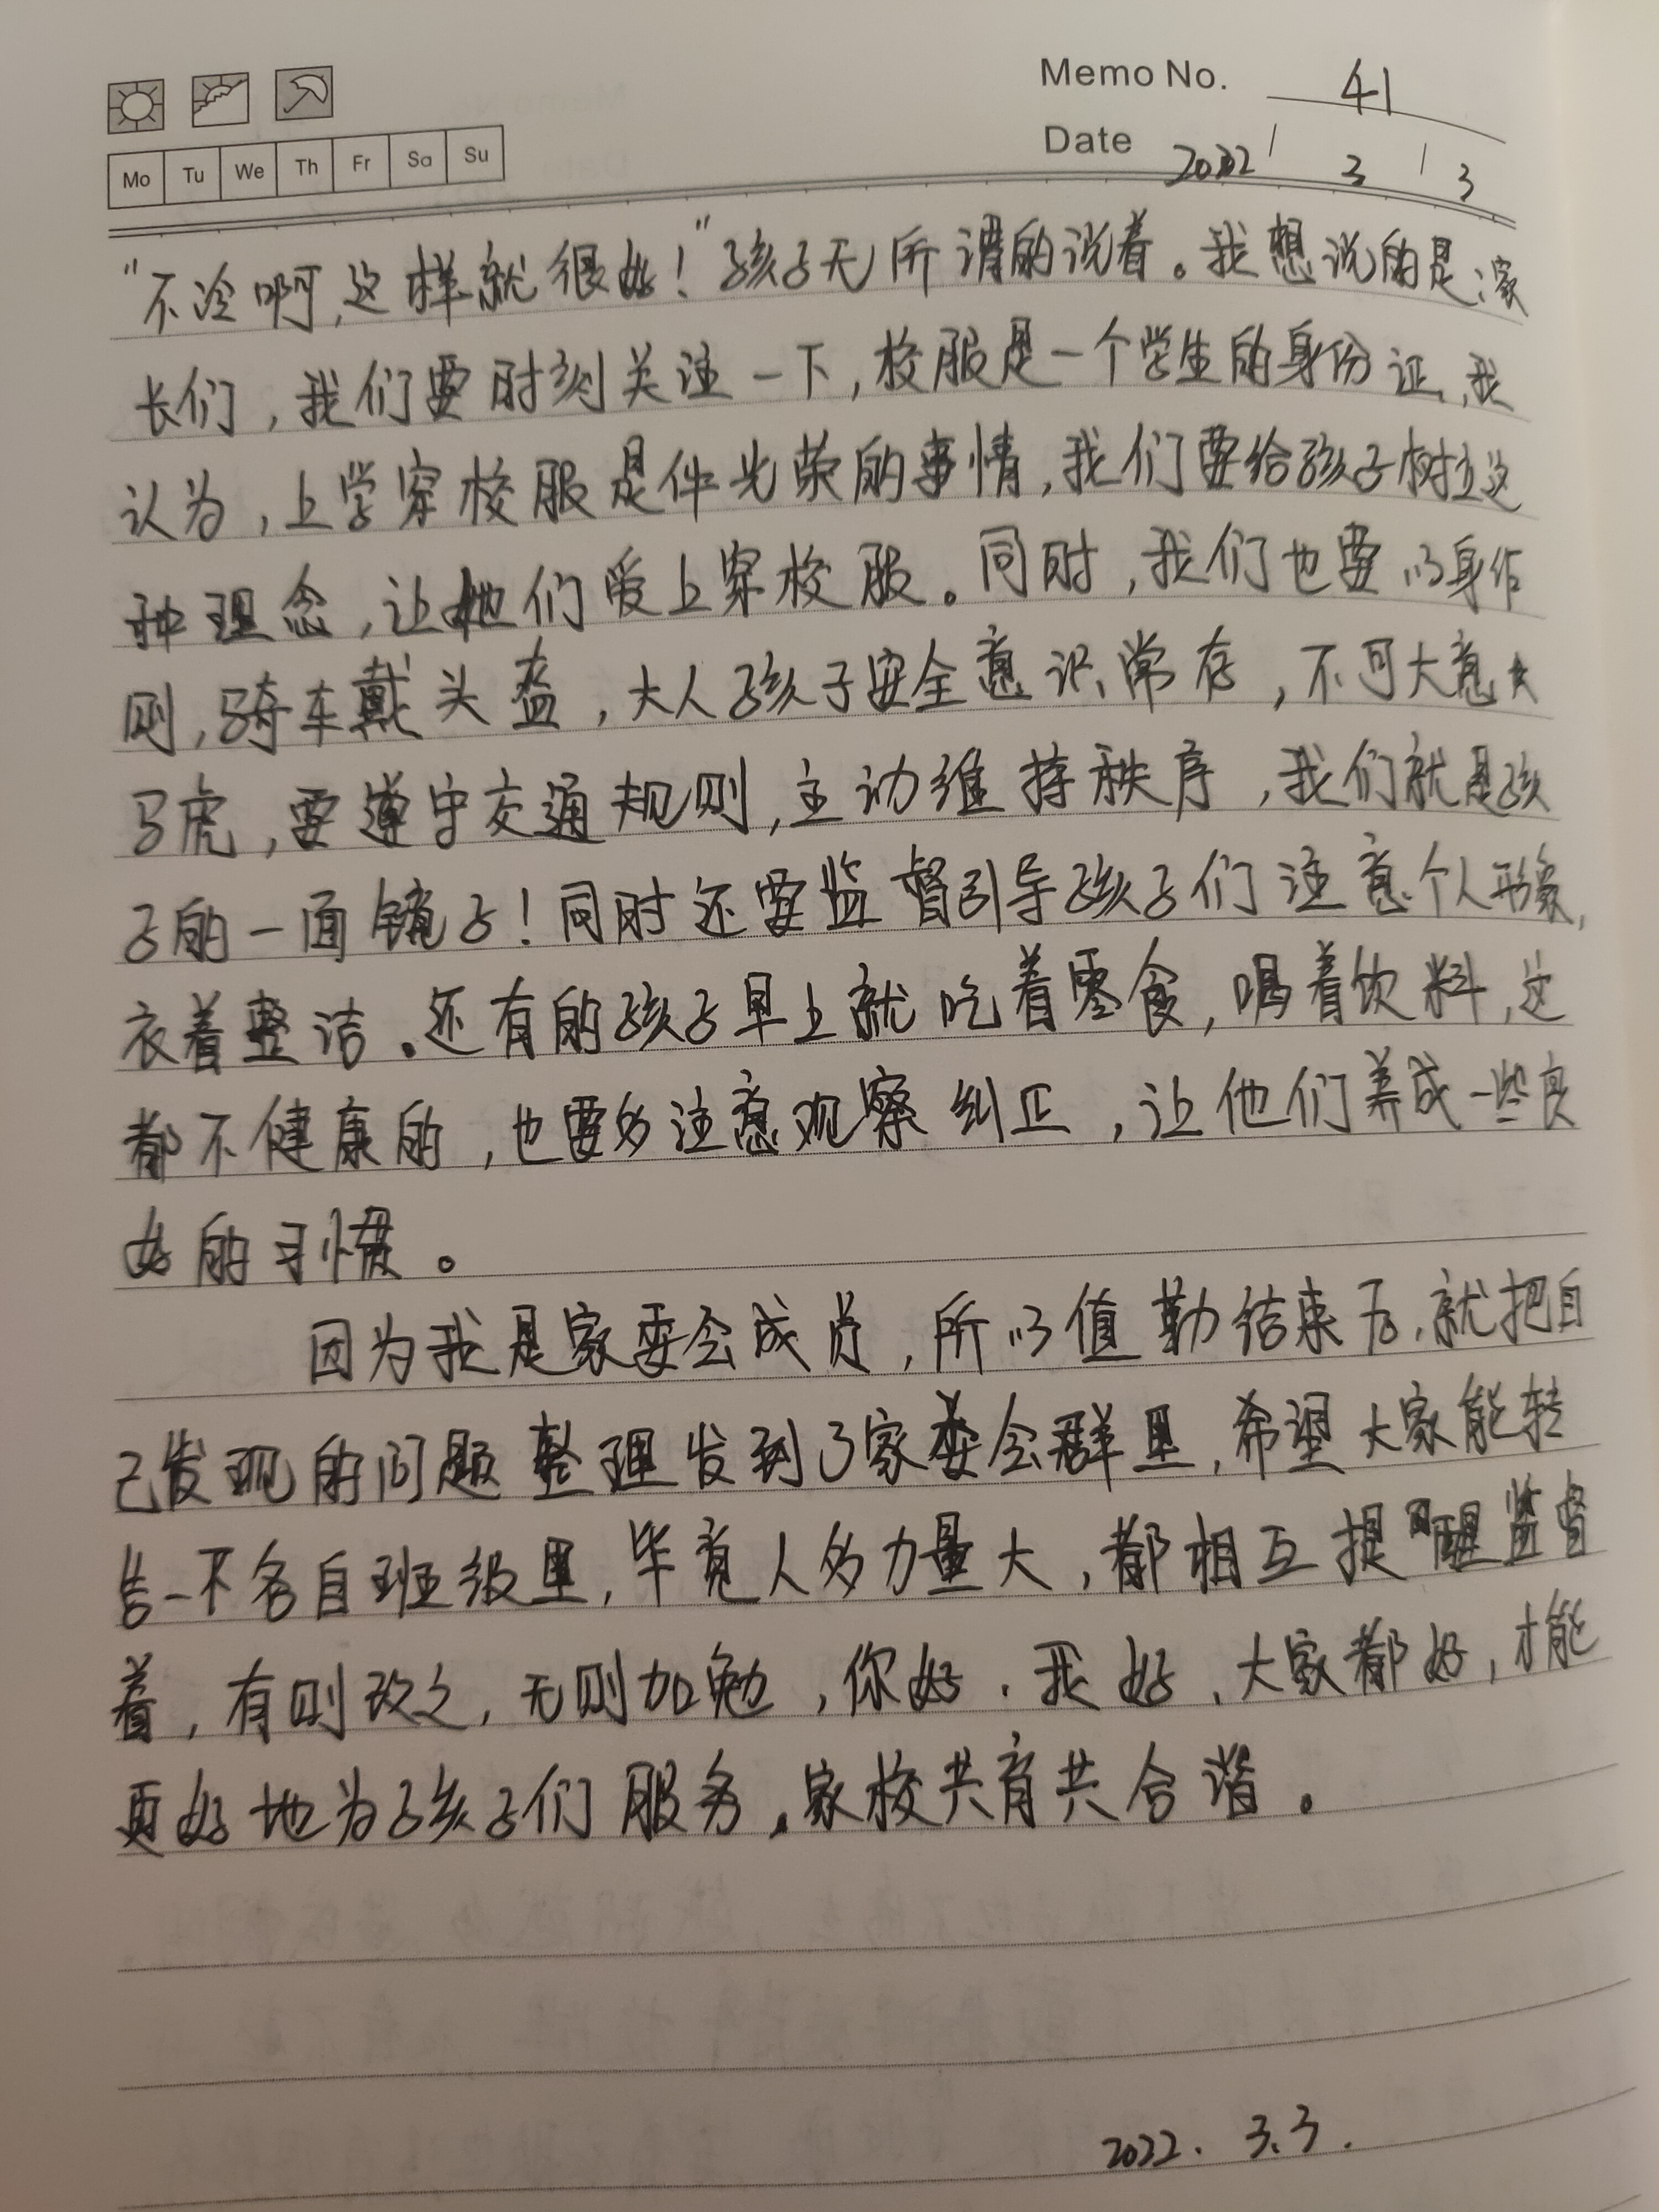 Memo No. 41
Mo Tu We Th Fr Sa Su
Date 2022 / 3 / 3
"不冷啊,这样就很好!"孩子无所谓的说着。我想说的是:家
长们,我们要时刻关注一下,校服是一个学生的身份证,我
认为,上学穿校服是件光荣的事情,我们要给孩子树立这
种理念,让他们爱上穿校服。同时,我们也要以身作
则,骑车戴头盔,大人孩子安全意识常存,不可大意
马虎,要遵守交通规则,主动维持秩序,我们就是孩
子的一面镜子!同时还要监督引导孩子们注意个人形象,
衣着整洁。还有的孩子早上就吃着零食,喝着饮料,这
都不健康的,也要多注意观察纠正,让他们养成一些良
好的习惯。
因为我是家委会成员,所以值勤结束后,就把自
己发现的问题整理发到了家委会群里,希望大家能转
告一下各自班级里,毕竟人多力量大,都相互提醒监督
着,有则改之,无则加勉,你好、我好、大家都好,才能
更好地为孩子们服务。家校共育共合谐。
2022. 3.3.